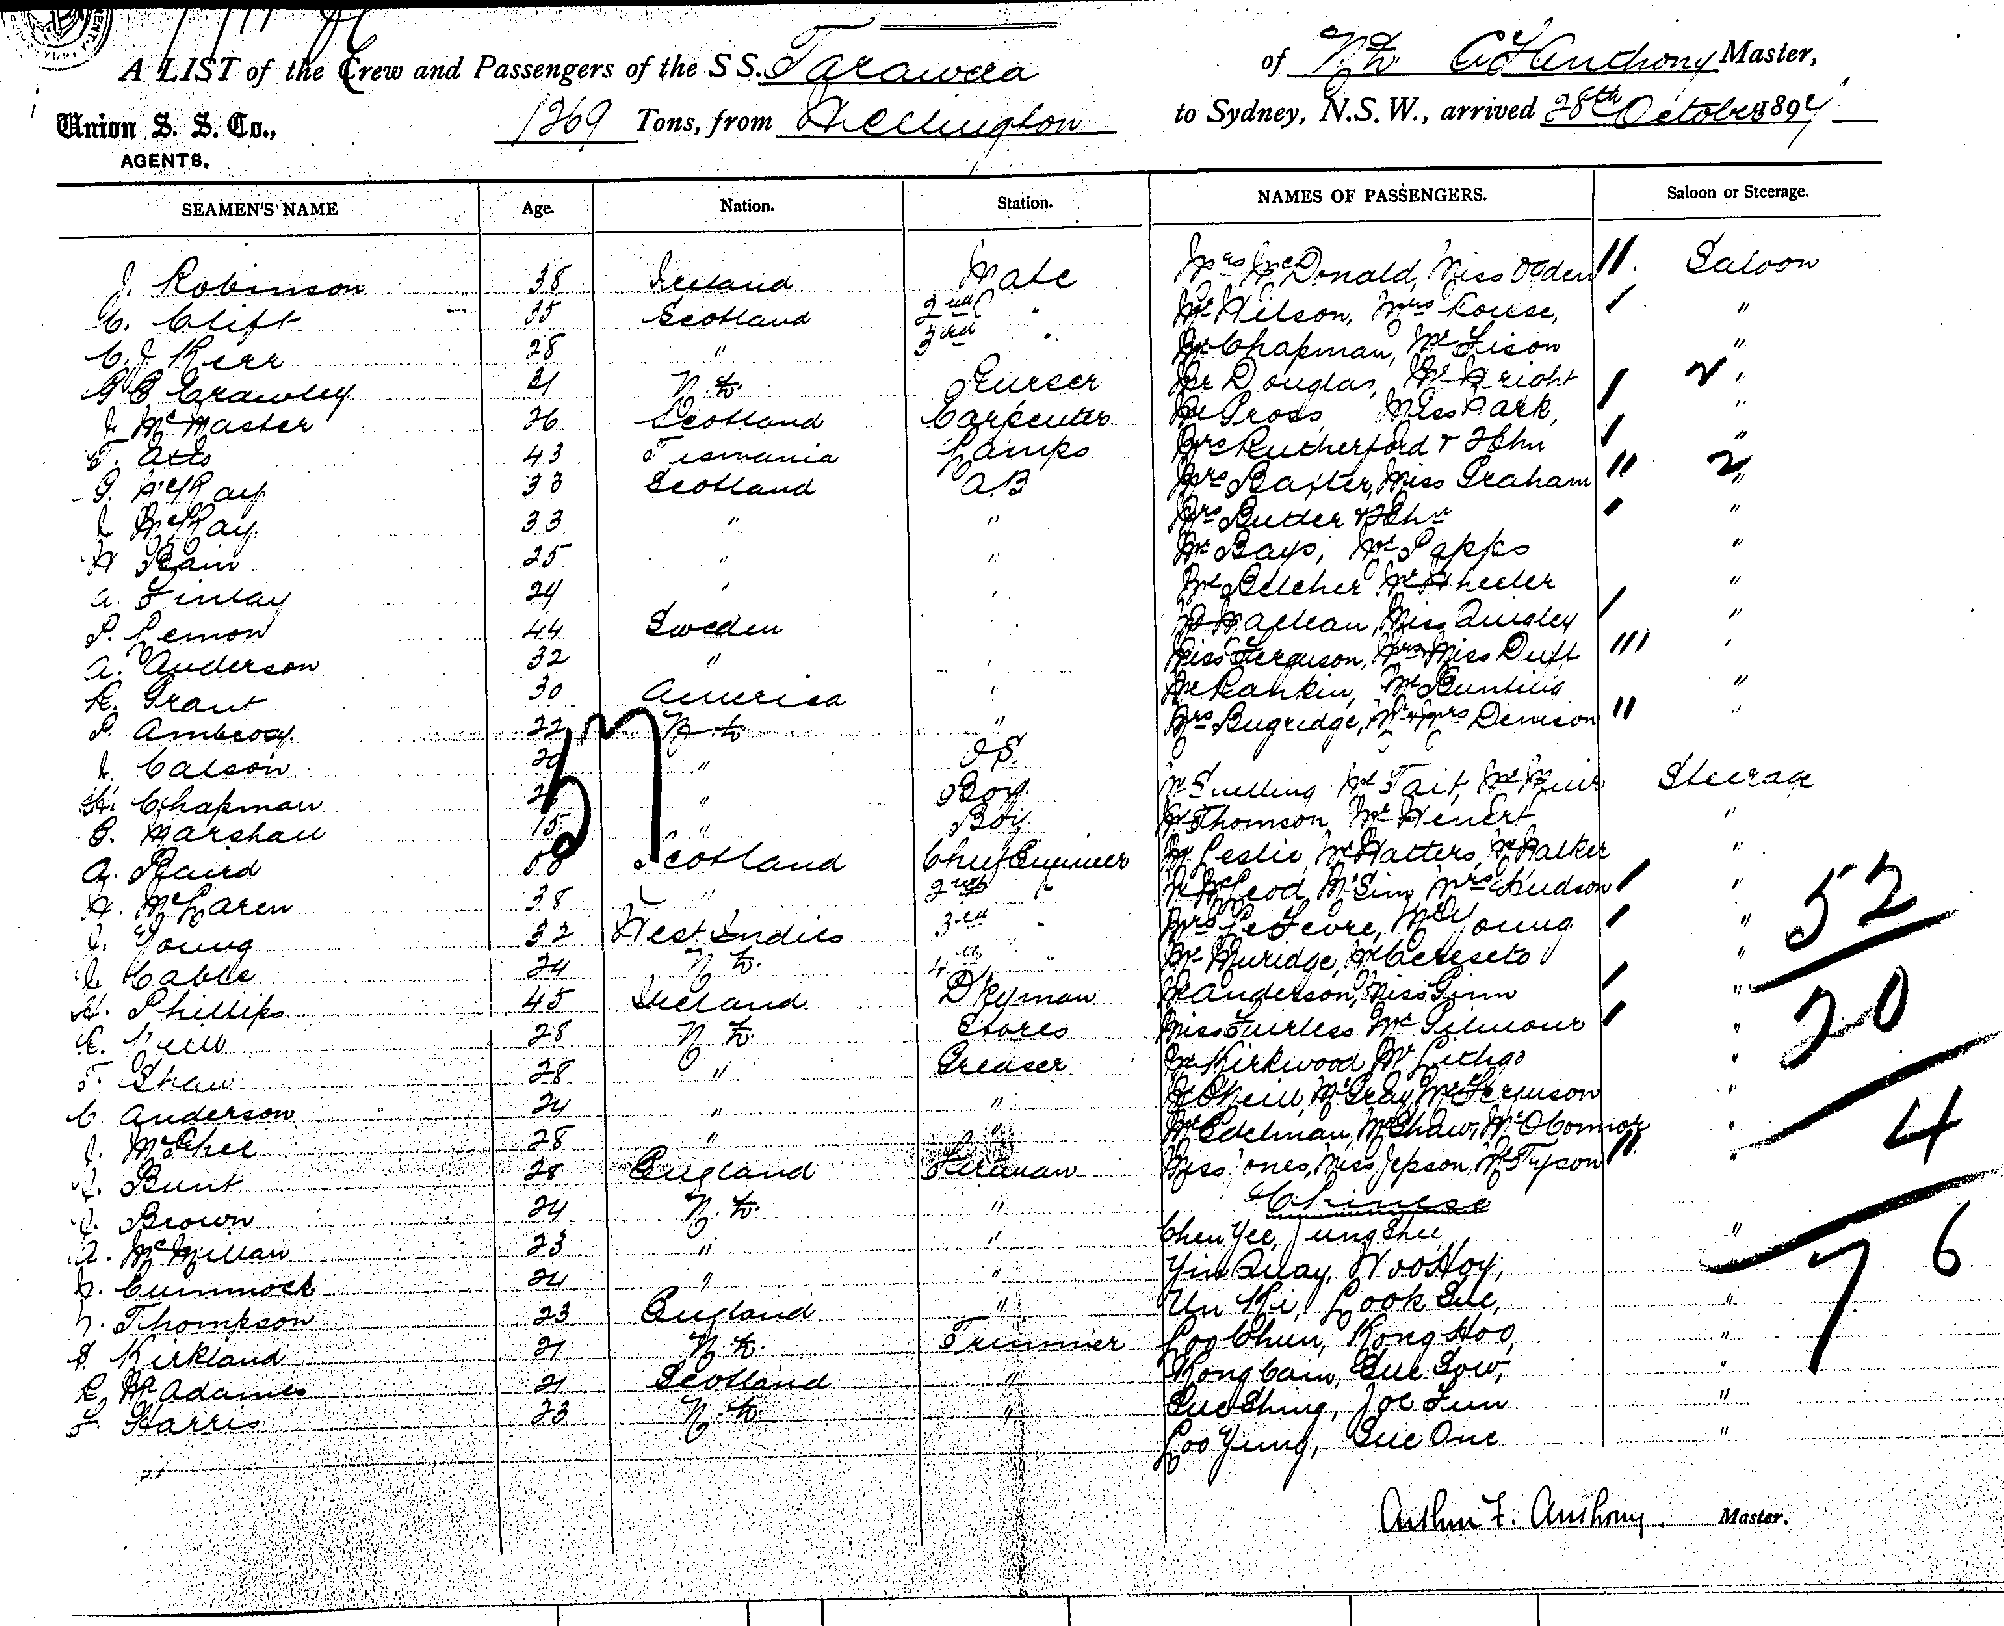 A LIST of the Crew and Passengers of the S S. Tarawera of N.Z. A F Anthony Master,
Union S. S. Co., 1269 Tons, from Wellington to Sydney, N.S.W., arrived 28th October 1897
AGENTS.
SEAMEN'S NAME Age. Nation. Station. NAMES OF PASSENGERS. Saloon or Steerage.
J. Robinson 38 Ireland Mate Mrs McDonald, Miss Ogden 11. Saloon
C. Clift 35 Scotland 2nd " Mr Wilson, Mrs Rouse, 1 "
C. J. Kerr 28 " 3rd " Mr Chapman, Mr Lison "
Crawley 21 N.Z. Purser Mr Douglas, Mr Wright 1 2 "
J. McMaster 26 Scotland Carpenter Mr Gross, Miss Park, "
T. 43 Tasmania Lamps Mrs Rutherford & 2 Chn 1 "
G. McKay 33 Scotland A.B Mrs Baxter, Miss Graham 11 2 "
J. McKay 33 " " Mrs Butler & 2 Chn 1 "
25 " " Mr Bays, Mr Papps "
A. Finlay 24 " " Mr Belcher Mr Wheeler "
P. Lemon 44 Sweden " Maclean, Miss Quigley 1 "
A. Anderson 32 " " Miss Ferguson, Mrs & Miss Duff 111 "
R. Grant 30 America " Mr Rankin, Mr "
P. Ambrosy 22 N.Z. " Mrs Bugridge, Mr & Mrs Denison 11 "
J. Calson 20 " O.S.
H. Chapman " Boy Mr Snelling Mr Tait, Mr Muir Steerage
G. Marshall 15 " Boy Mr Thomson, Mr "
A. Baird Scotland Chief Engineer Mr Leslie, Mr Watters, Mr Walker "
57
A. McLaren 38 " 2nd " Mr McLeod, Mr Sim, Mrs Hudson 1 "
J. Young 32 West Indies 3rd " Mrs LeFevre, Mr Young 1 " 52
J. Cable 24 N.Z. 4th " Mr "
H. Phillips 45 Ireland Dkyman Mr Anderson, Miss Ginn 1 " 20
28 N.Z. Stores Miss Fairless Mr Gilmour 1 "
T. Shaw 28 " Greaser Mr Kirkwood Mr "
C. Anderson 24 " " Mr O'Neill, Mr Gray, Mr Ferguson "
J. 28 " " Mr Edelman, Mr Shaw, Mr O'Connor " 4
J. Bunt 28 England Fireman Miss Jones, Miss Jepson, Mr Tyson 11 "
J. Brown 24 N.Z. " Chinese
A. McMillan 23 " " Chen Yee, Jung Shu, " 76
Cummock 24 " " Yin Quay, Woo Hoy,
Thompson 23 England " Un Ki, Look Sue, "
Kirkland 21 N.Z. Trimmer Loo Chun, Kong Hoo, "
R. McAdames 21 Scotland " Kong Cain, Sue Sow, "
F. Harris 23 N.Z. " Sue Shing, Joe Lun "
Loo Yung, Sue One "
Arthur F. Anthony Master.